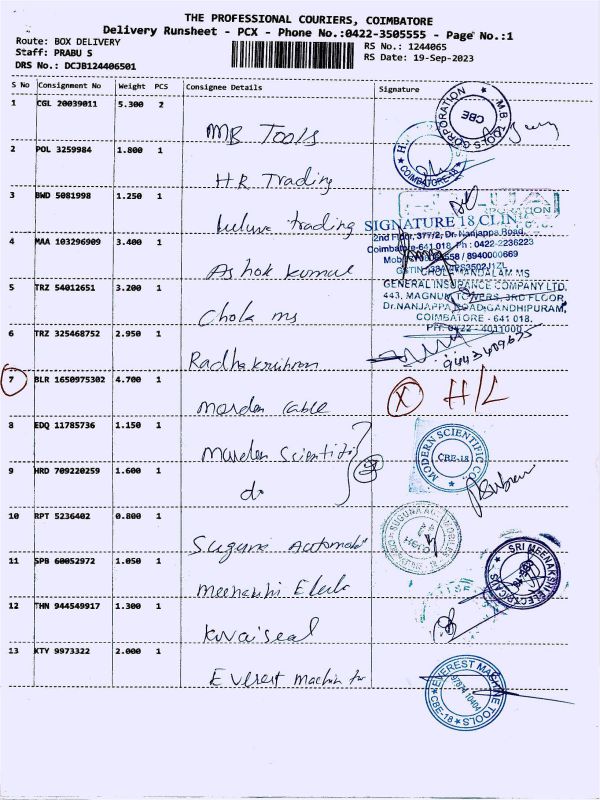 THE PROFESSIONAL COURIERS, COIMBATORE
Delivery Runsheet - PCX - Phone No.:0422-3505555 - Page No.:1
Route: BOX DELIVERY
RS No.: 1244065
Staff: PRABU S
RS Date: 19-Sep-2023
DRS No.: DCJB124406501
S No Consignment No Weight PCS Consignee Details Signature
1 CGL 20039011 5.300 2
MB Tools
M.B. TOOLS CORPORATION CBE
2 POL 3259984 1.800 1
HR Trading
COIMBATORE-18
3 BWD 5081998 1.250 1
trading
SIGNATURE 18 CLINIC
2nd Floor, 377/2, Dr. Nanjappa Road,
Coimbatore-641 018. Ph : 0422-2236223
4 MAA 103296909 3.400 1
Ashok Kumar
/ 8940000669
CHOLAMANDALAM MS
5 TRZ 54012651 3.200 1
Chola ms
GENERAL INSURANCE COMPANY LTD.
443, MAGNUM TOWERS, 3RD FLOOR,
Dr.NANJAPPA ROAD,GANDHIPURAM,
COIMBATORE - 641 018.
PH: 0422 - 4011000
6 TRZ 325468752 2.950 1
Radhakrishnan
7 BLR 1650975302 4.700 1
Morden Cable
X H/L
8 EDQ 11785736 1.150 1
Morden Scientific
MODERN SCIENTIFIC CO. CBE-18
9 HRD 709220259 1.600 1
do
10 RPT 5236402 0.800 1
Suguna Automobi
11 SPB 60052972 1.050 1
Meenakshi
SRI MEENAKSHI ELECTRICALS
12 THN 944549917 1.300 1
13 KTY 9973322 2.000 1
Everest Machin
EVEREST MACHINE TOOLS CBE-18